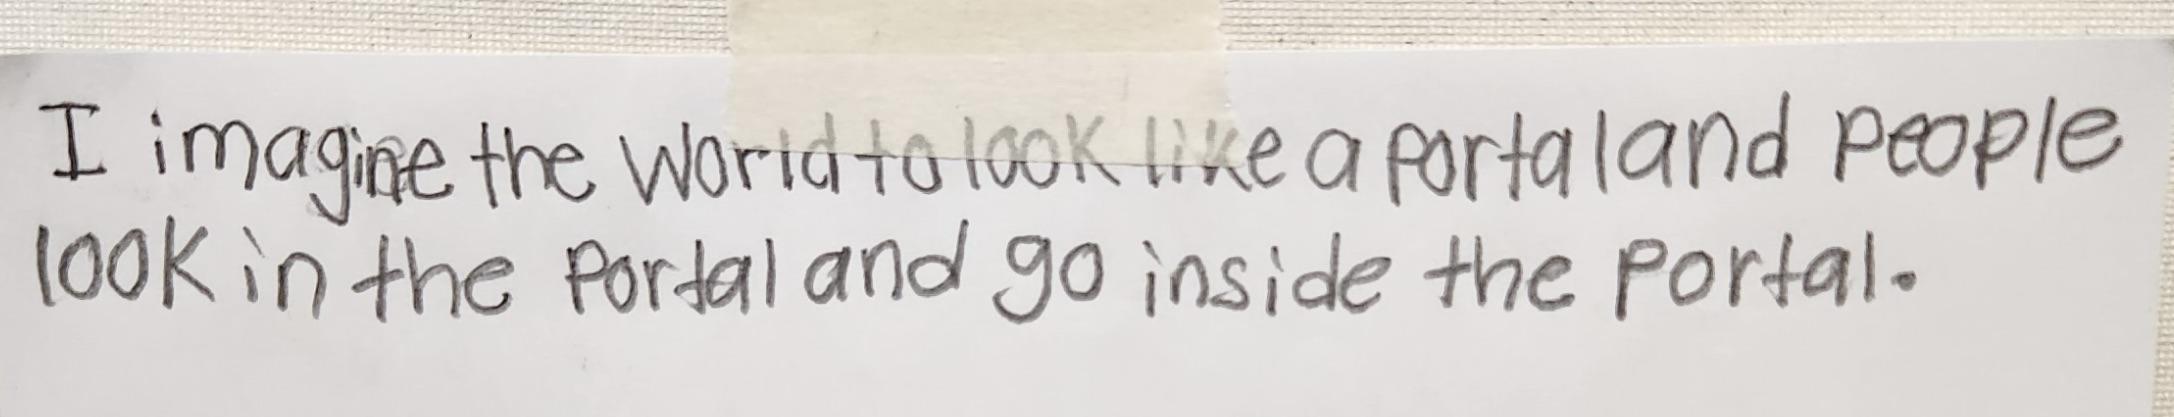 I imagine the world to look like a portal and people
look in the portal and go inside the portal.